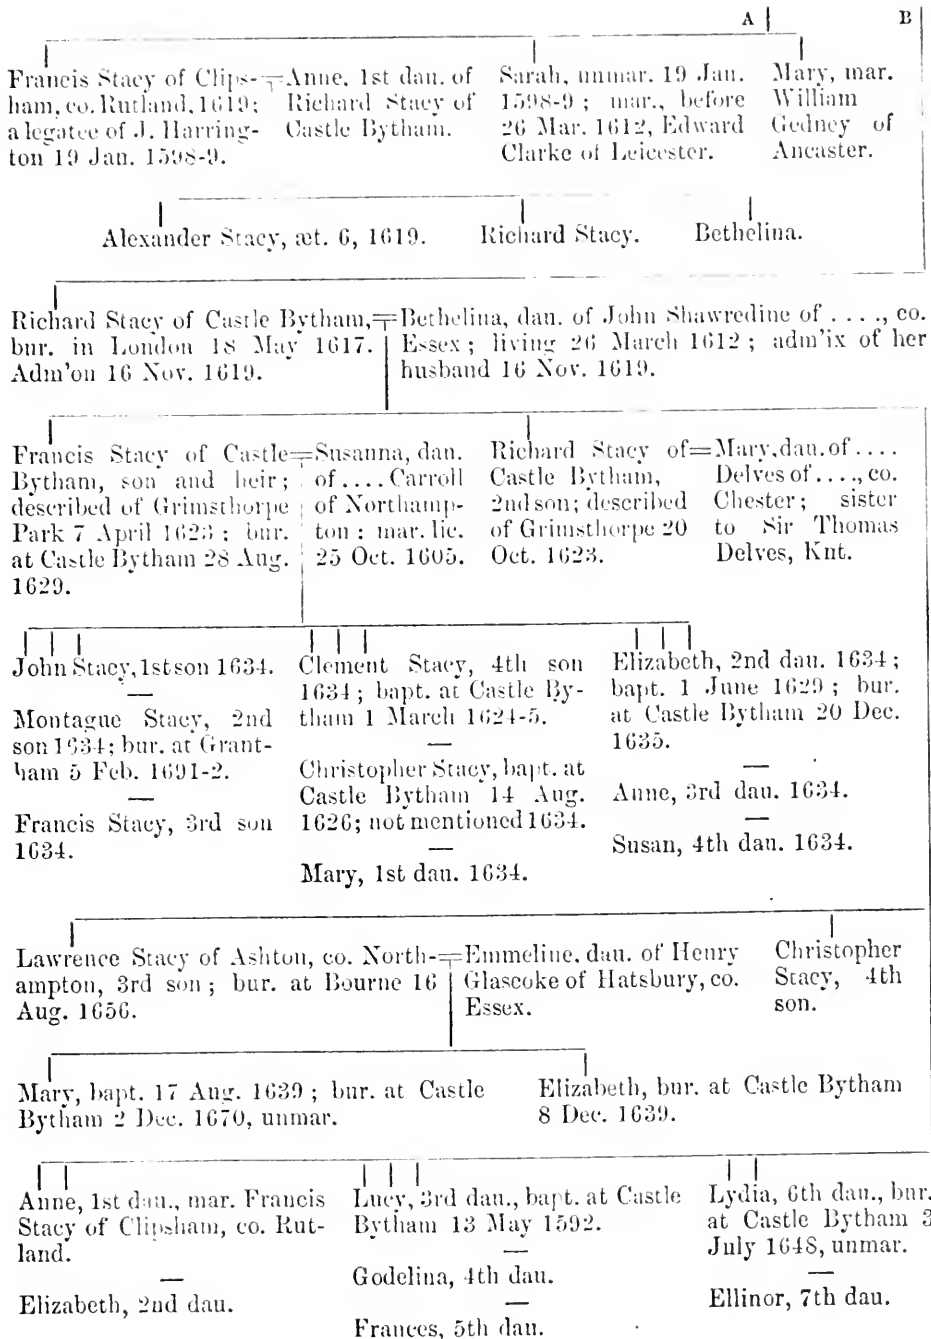 A B
Francis Stacy of Clips-
ham, co. Rutland, 1619;
a legatee of J. Harring-
ton 19 Jan. 1598-9.
Anne, 1st dau. of
Richard Stacy of
Castle Bytham.
Sarah, unmar. 19 Jan.
1598-9; mar., before
26 Mar. 1612, Edward
Clarke of Leicester.
Mary, mar.
William
Gedney of
Ancaster.
Alexander Stacy, æt. 6, 1619.
Richard Stacy.
Bethelina.
Richard Stacy of Castle Bytham,
bur. in London 18 May 1617.
Adm'on 16 Nov. 1619.
Bethelina, dau. of John Shawredine of . . . ., co.
Essex; living 26 March 1612; adm'ix of her
husband 16 Nov. 1619.
Francis Stacy of Castle
Bytham, son and heir;
described of Grimsthorpe
Park 7 April 1623; bur.
at Castle Bytham 28 Aug.
1629.
Susanna, dau.
of . . . . Carroll
of Northamp-
ton: mar. lic.
25 Oct. 1605.
Richard Stacy of
Castle Bytham,
2nd son; described
of Grimsthorpe 20
Oct. 1623.
Mary, dau. of . . . .
Delves of . . . ., co.
Chester; sister
to Sir Thomas
Delves, Knt.
John Stacy, 1st son 1634.
—
Montague Stacy, 2nd
son 1634; bur. at Grant-
ham 5 Feb. 1691-2.
—
Francis Stacy, 3rd son
1634.
Clement Stacy, 4th son
1634; bapt. at Castle By-
tham 1 March 1624-5.
—
Christopher Stacy, bapt. at
Castle Bytham 14 Aug.
1626; not mentioned 1634.
—
Mary, 1st dau. 1634.
Elizabeth, 2nd dau. 1634;
bapt. 1 June 1629; bur.
at Castle Bytham 20 Dec.
1635.
—
Anne, 3rd dau. 1634.
—
Susan, 4th dau. 1634.
Lawrence Stacy of Ashton, co. North-
ampton, 3rd son; bur. at Bourne 16
Aug. 1656.
Emmeline, dau. of Henry
Glascoke of Hatsbury, co.
Essex.
Christopher
Stacy, 4th
son.
Mary, bapt. 17 Aug. 1639; bur. at Castle
Bytham 2 Dec. 1670, unmar.
Elizabeth, bur. at Castle Bytham
8 Dec. 1639.
Anne, 1st dau., mar. Francis
Stacy of Clipsham, co. Rut-
land.
—
Elizabeth, 2nd dau.
Lucy, 3rd dau., bapt. at Castle
Bytham 13 May 1592.
—
Godelina, 4th dau.
—
Frances, 5th dau.
Lydia, 6th dau., bur.
at Castle Bytham 3
July 1648, unmar.
—
Ellinor, 7th dau.